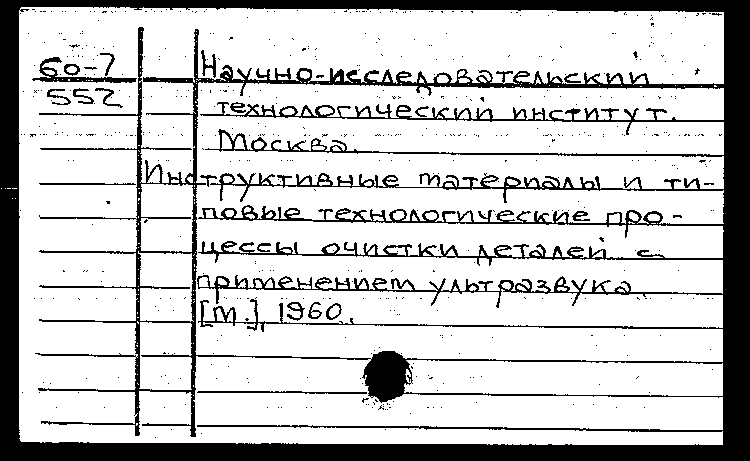 60-7
552
Научно-исследовательский
технологический институт.
Москва.
Инструктивные материалы и ти-
повые технологические про-
цессы очистки деталей с
применением ультразвука.
[М.], 1960.